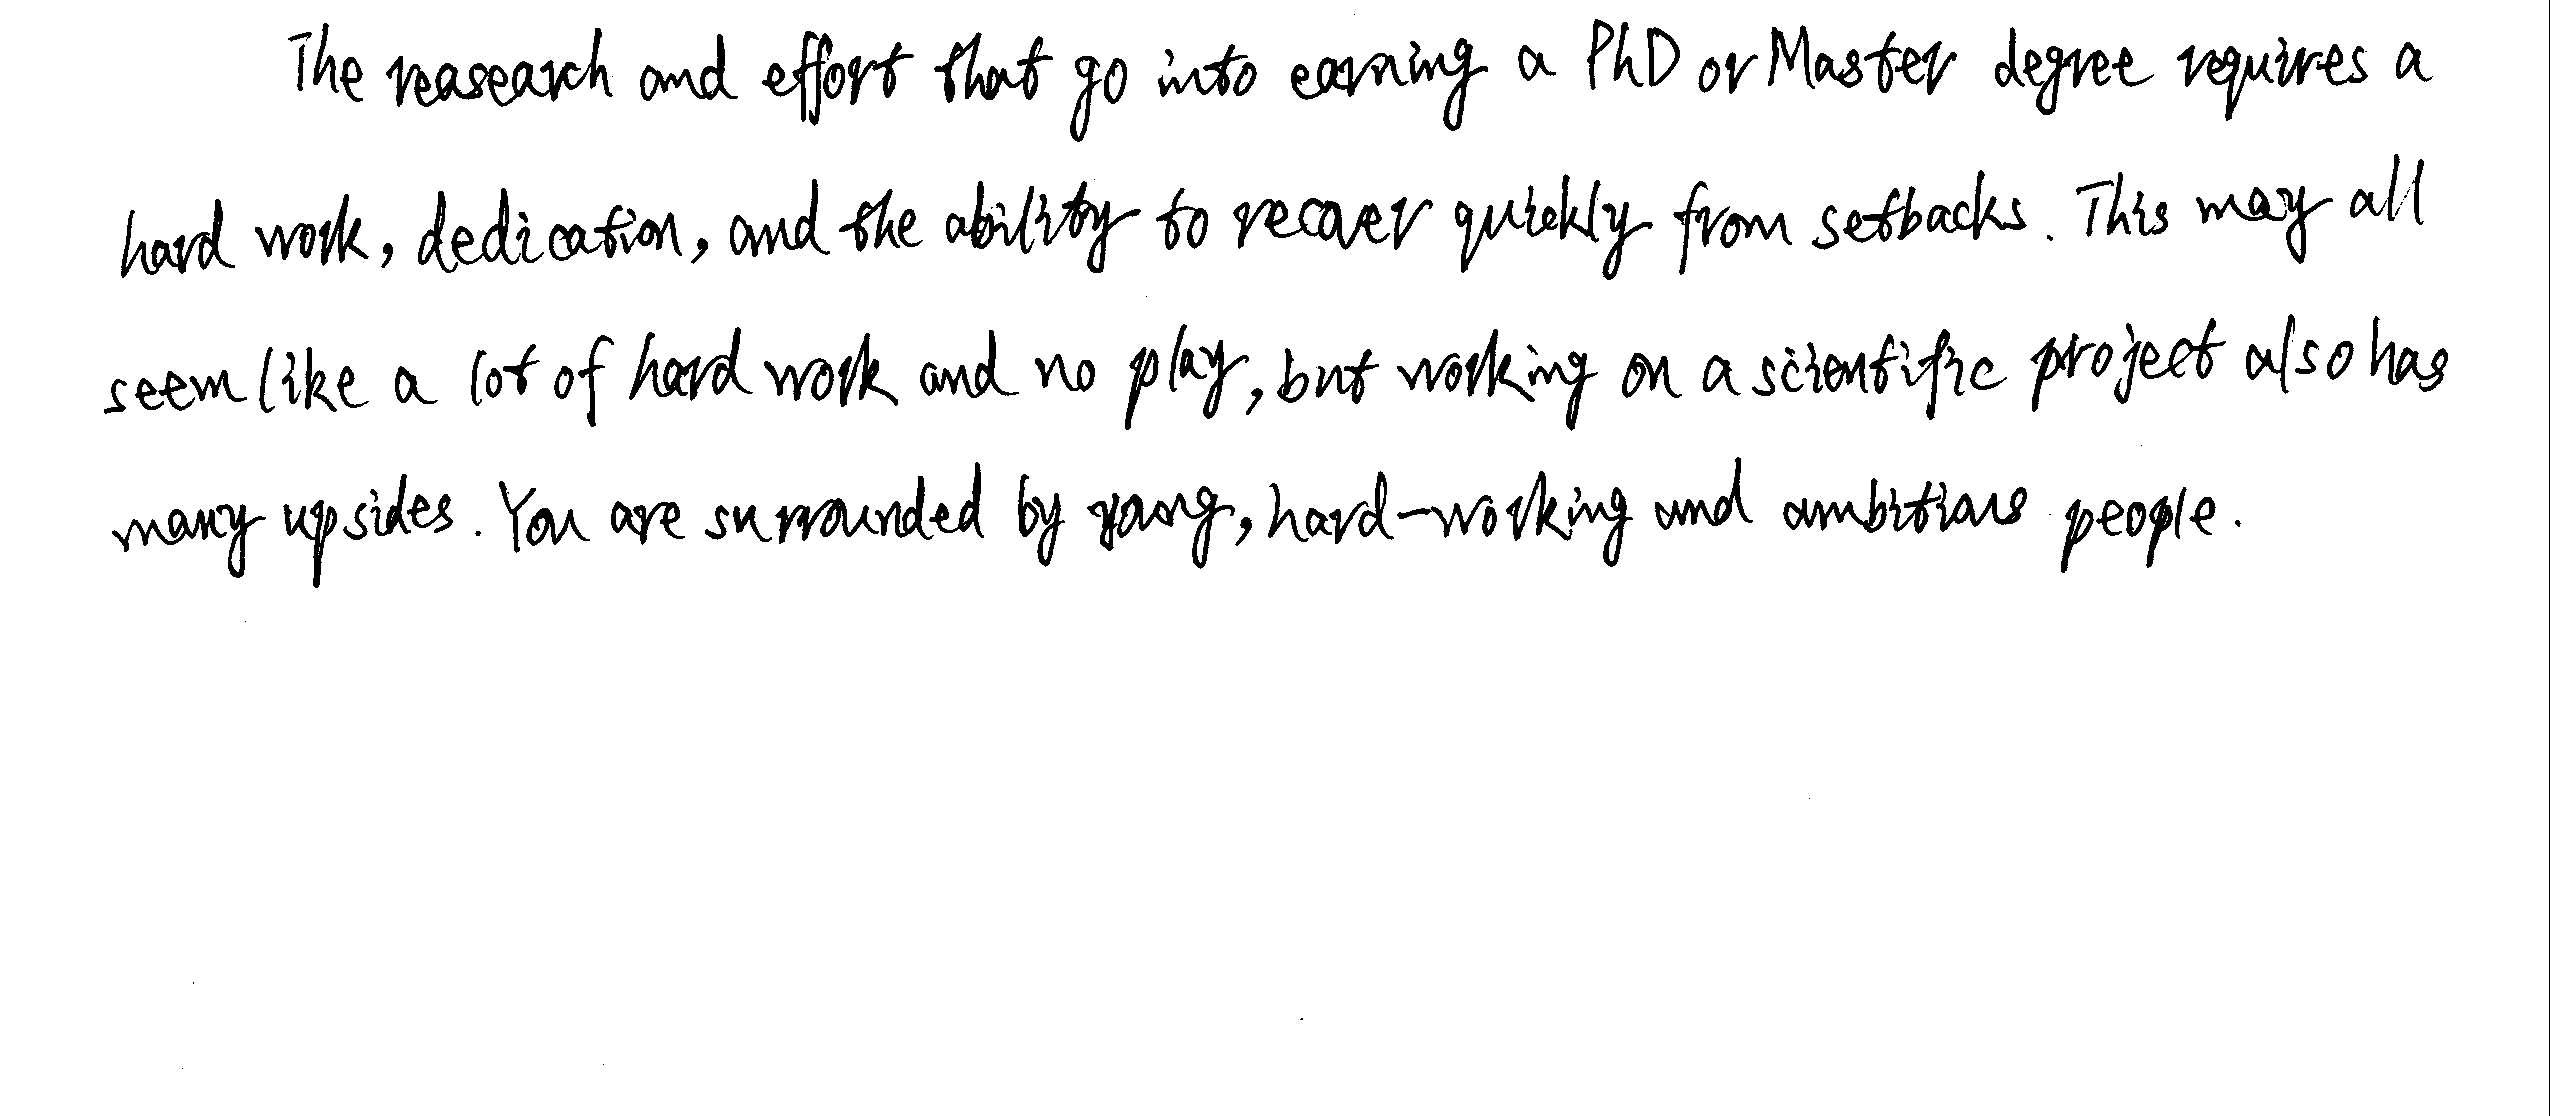 The reasearch and effort that go into earning a PhD or Master degree requires a
hard work, dedication, and the ability to recover quickly from setbacks. This may all
seem like a lot of hard work and no play, but working on a scientific project also has
many upsides. You are surrounded by young, hard-working and ambitious people.